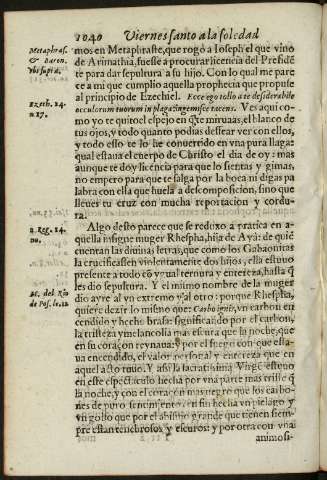 1040 Viernes santo a la soledad
Metaphras.
& Baron.
vbi supra.
mos en Metaphraste, que rogò a Ioseph el que vino
de Arimathia, fuesse a procurar licencia del Presidē
te para dar sepultura a su hijo. Con lo qual me pare
ce a mi que cumplio aquella prophecia que propuse
Ezech. 24.
n 17.
al principio de Ezechiel. Ecce ego tollo a te desiderabile
oculorum tuorum in plaga: ingemisce tacens. Ves aqui co-
mo yo te quito el espejo en q̄ te mirauas, el blanco de
tus ojos, y todo quanto podias dessear ver con ellos,
y todo esso te lo he conuertido en vna pura llaga:
qual estaua el cuerpo de Christo el dia de oy: mas
aunque te doy licencia para que lo sientas y gimas,
no empero para que te salga por la boca ni digas pa
labra con ella que huela a descomposicion, sino que
lleues tu cruz con mucha reportacion y cordu-
ra.
Algo desto parece que se reduxo a pratica en a-
2. Reg. 24.
quella insigne muger Rhespha, hija de Aya: de quiē
cuentan las diuinas letras, que como los Gabaonitas
la crucificassen violentamente dos hijos, ella estuuo
presente a todo cō ygual ternura y entereza, hasta q̄
les dio sepultura. Y el mismo nombre de la muger
dio ayre al vn extremo y al otro: porque Rhespha,
quiere dezir lo mismo que: Carbo ignis, vn carbon en
cendido y hecho brasa: significando por el carbon,
la tristeza y melancolia mas escura que la noche, que
en su coraçon reynaua: y por el fuego con que esta-
ua encendido, el valor personal y entereza que en
aquel acto tuuo. Y assi la sacratissima Virgē estuuo
en este espectaculo hecha por vna parte mas triste q̄
la noche, y con el coraçon mas negro que los carbo-
nes de puro sentimiento: en fin hecha vn pielago y
vn golfo que por el abismo grande que tienen siem-
pre estan tenebrosos y escuros: y por otra con vna
animosi-